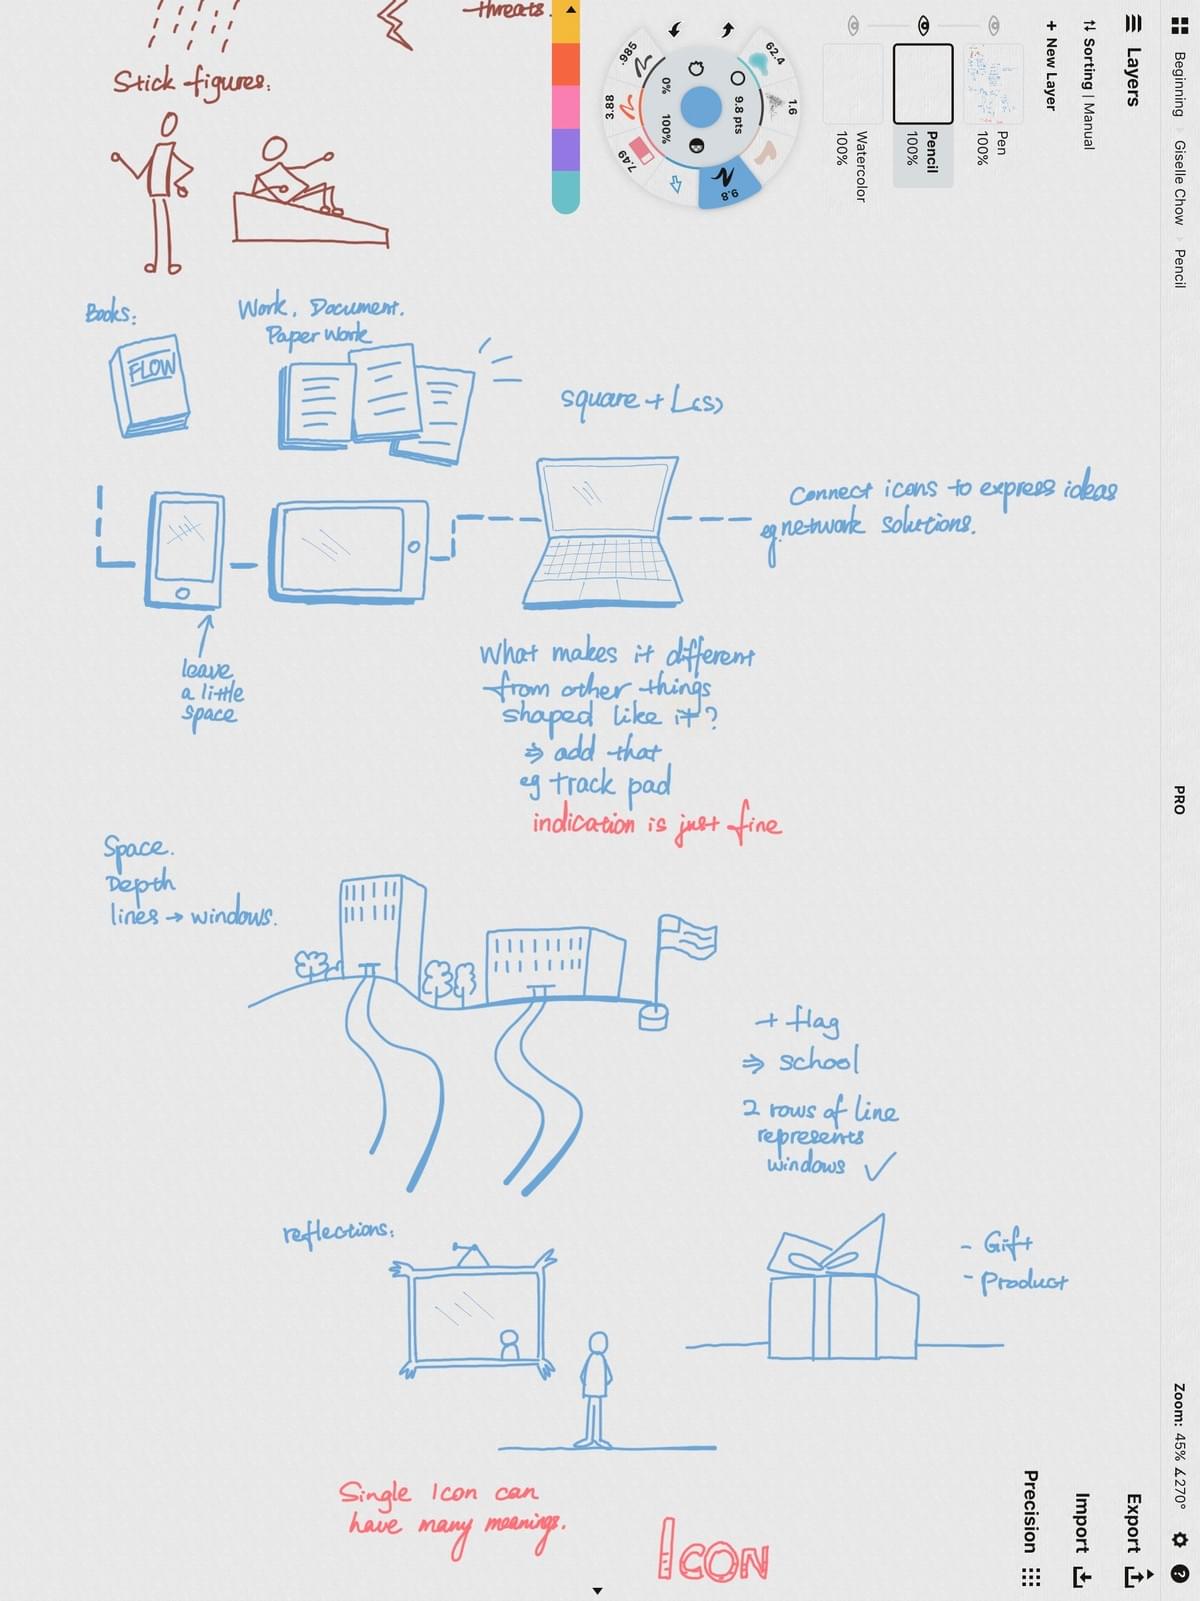 threats.
Stick figures:
Books:
FLOW
Work, Document.
Paper Work
square + L(s)
Connect icons to express ideas
eg. network solutions.
leave
a little
space
What makes it different
from other things
shaped like it?
⇒ add that
eg track pad
indication is just fine
Space.
Depth
lines → windows.
+ flag
⇒ school
2 rows of line
represents
windows ✓
reflections:
- Gift
- Product
Single Icon can
have many meanings.
ICON
Beginning
Giselle Chow
Pencil
PRO
Zoom: 45% ∡270°
Layers
Sorting | Manual
+ New Layer
Pen
100%
Pencil
100%
Watercolor
100%
62.4
1.6
9.8
7.49
3.88
.985
9.8 pts
0%
100%
Export
Import
Precision
?